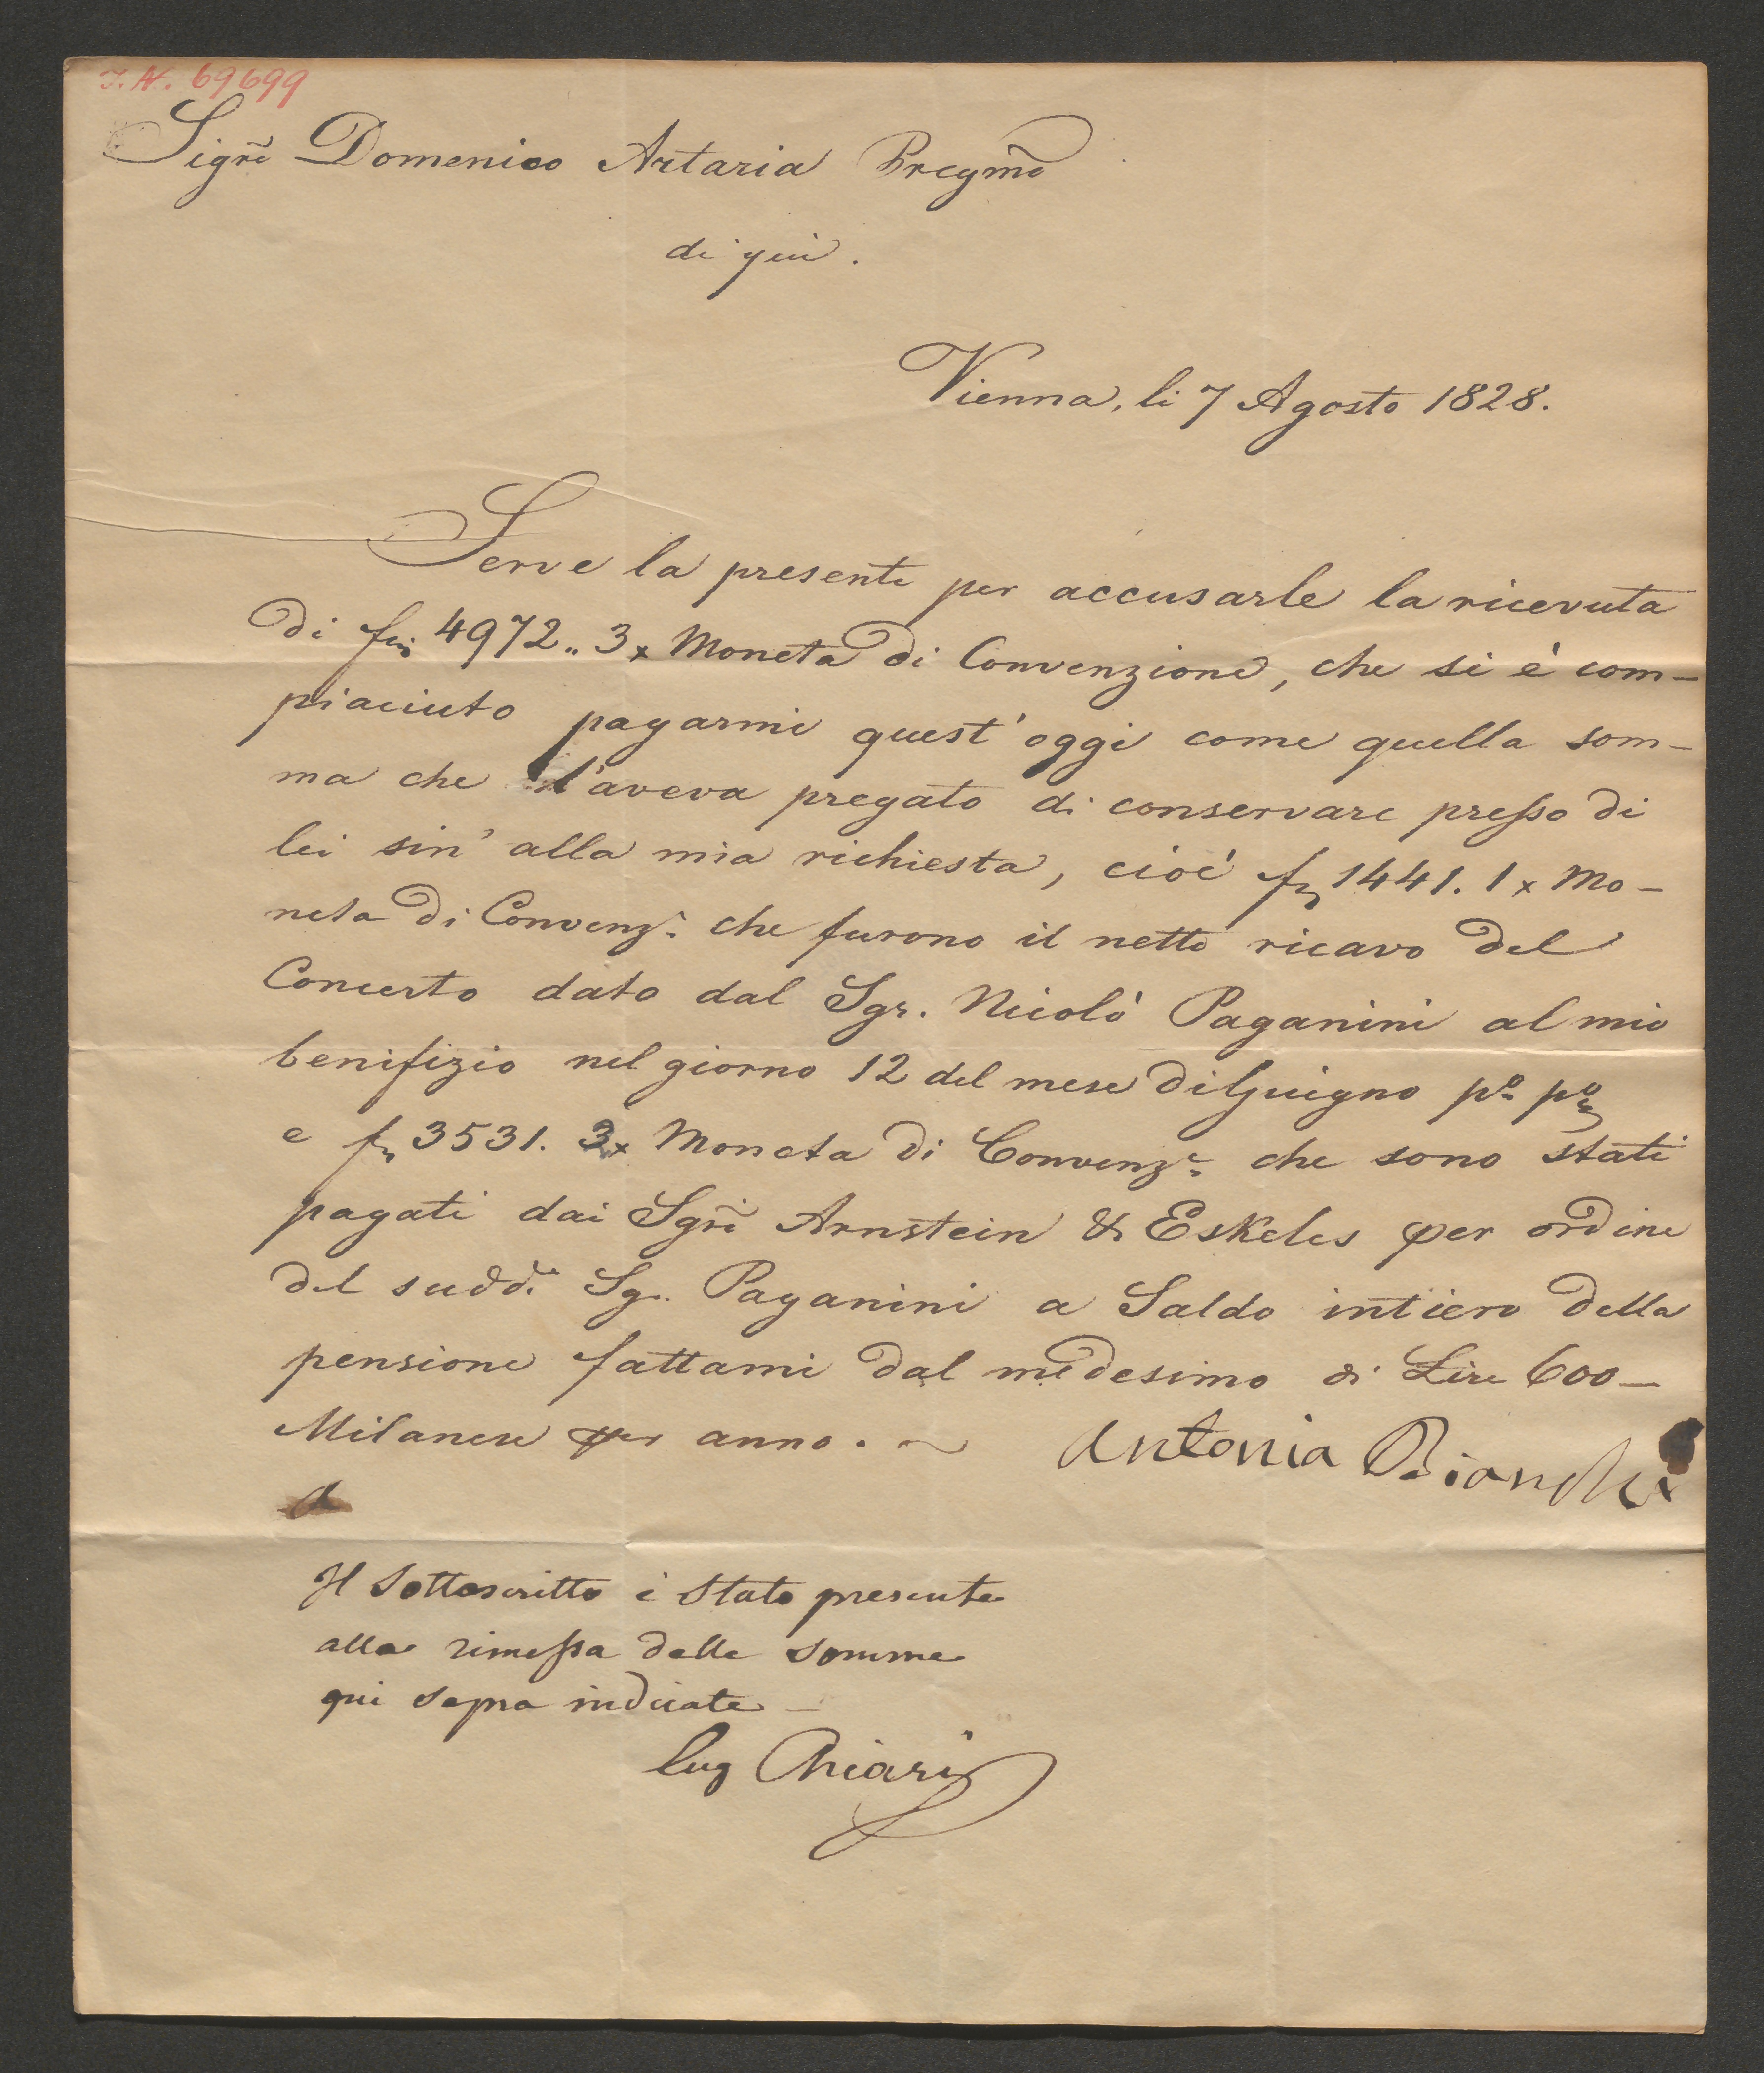 I.N. 69699
Sigrẽ Domenico Artaria Pregmõ
di qui.
Vienna, li 7 Agosto 1828.
Serve la presente per accusarle la ricevuta
di fni 4972„ 3x Moneta di Convenzione, che si è com-
piaciuto pagarmi quest' oggi come quella som-
ma che l'aveva pregato di conservare presso di
lei sin' alla mia richiesta, cioè fn 1441. 1x Mo-
neta di Convenz.e che furono il netto ricavo del
Concerto dato dal Sgr. Nicolò Paganini al mio
benifizio nel giorno 12 del mese di Giugno po po
e fn 3531. 2x Moneta di Convenz.e che sono stati
pagati dai Sgri Arnstein & Eskeles per ordine
del sudd.o Sgr. Paganini a Saldo intiero della
pensione fattami dal medesimo di Lire 600-
Milanese per anno. ~ Antonia Bianchi
A
Il Sottoscritto è Stato presente
alla rimessa delle Somme
qui Sopra indicate –
Lug Chiari